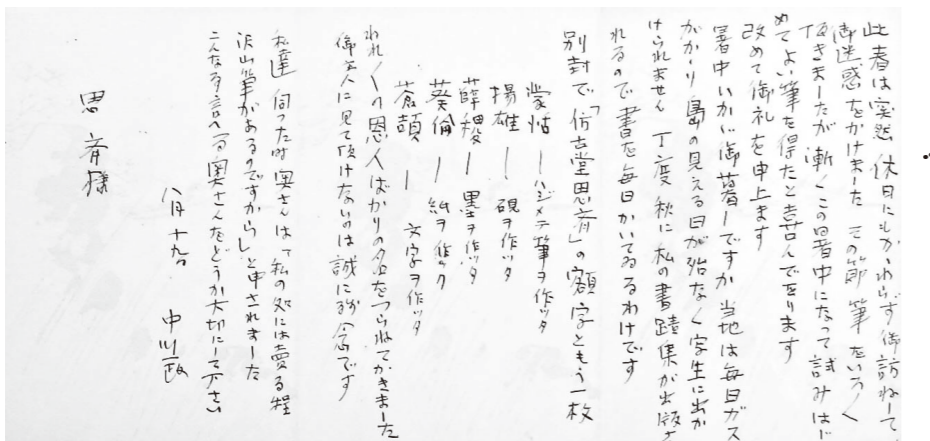 此春は突然休日にもかゝわらず御訪ねして
御迷惑をかけました その節 筆をいろ〱
頂きましたが漸くこの暑中になって試みはじ
めてよい筆を得たと喜んで居ります
改めて御礼を申上ます
暑中いかに御暮しですか 当地は毎日ガス
がかゝり島の見える日が殆なく写生に出か
けられません 丁度秋に私の書蹟集が出版さ
れるので書を毎日かいてゐるわけです
別封で「仿古堂思斉」の額字ともう一枚
蒙恬 ― ハジメテ筆ヲ作ッタ
揚雄 ― 硯ヲ作ッタ
薛稷 ― 墨ヲ作ッタ
葵倫 ― 紙ヲ作ッタ
蒼頡 ― 文字ヲ作ッタ
われ〱の恩人ばかりの名をつらねてかきました
御主人に見て頂けないのは誠に残念です
私達 伺った時奥さんは「私の処には売る程
沢山筆があるのですから」と申されました
こんなよい言葉を云へる奥さんをどうか大切にして下さい
八月十九日 中川一政
思斉様